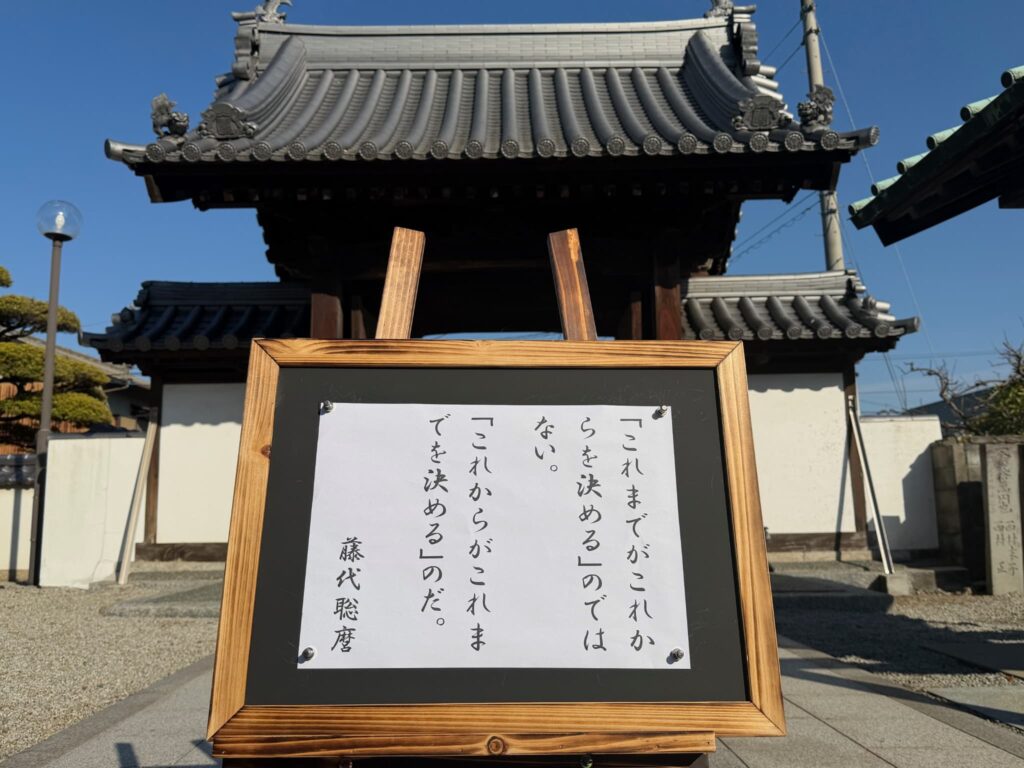 「これまでがこれか
らを決める」のでは
ない。
「これからがこれま
でを決める」のだ。
藤代聡麿